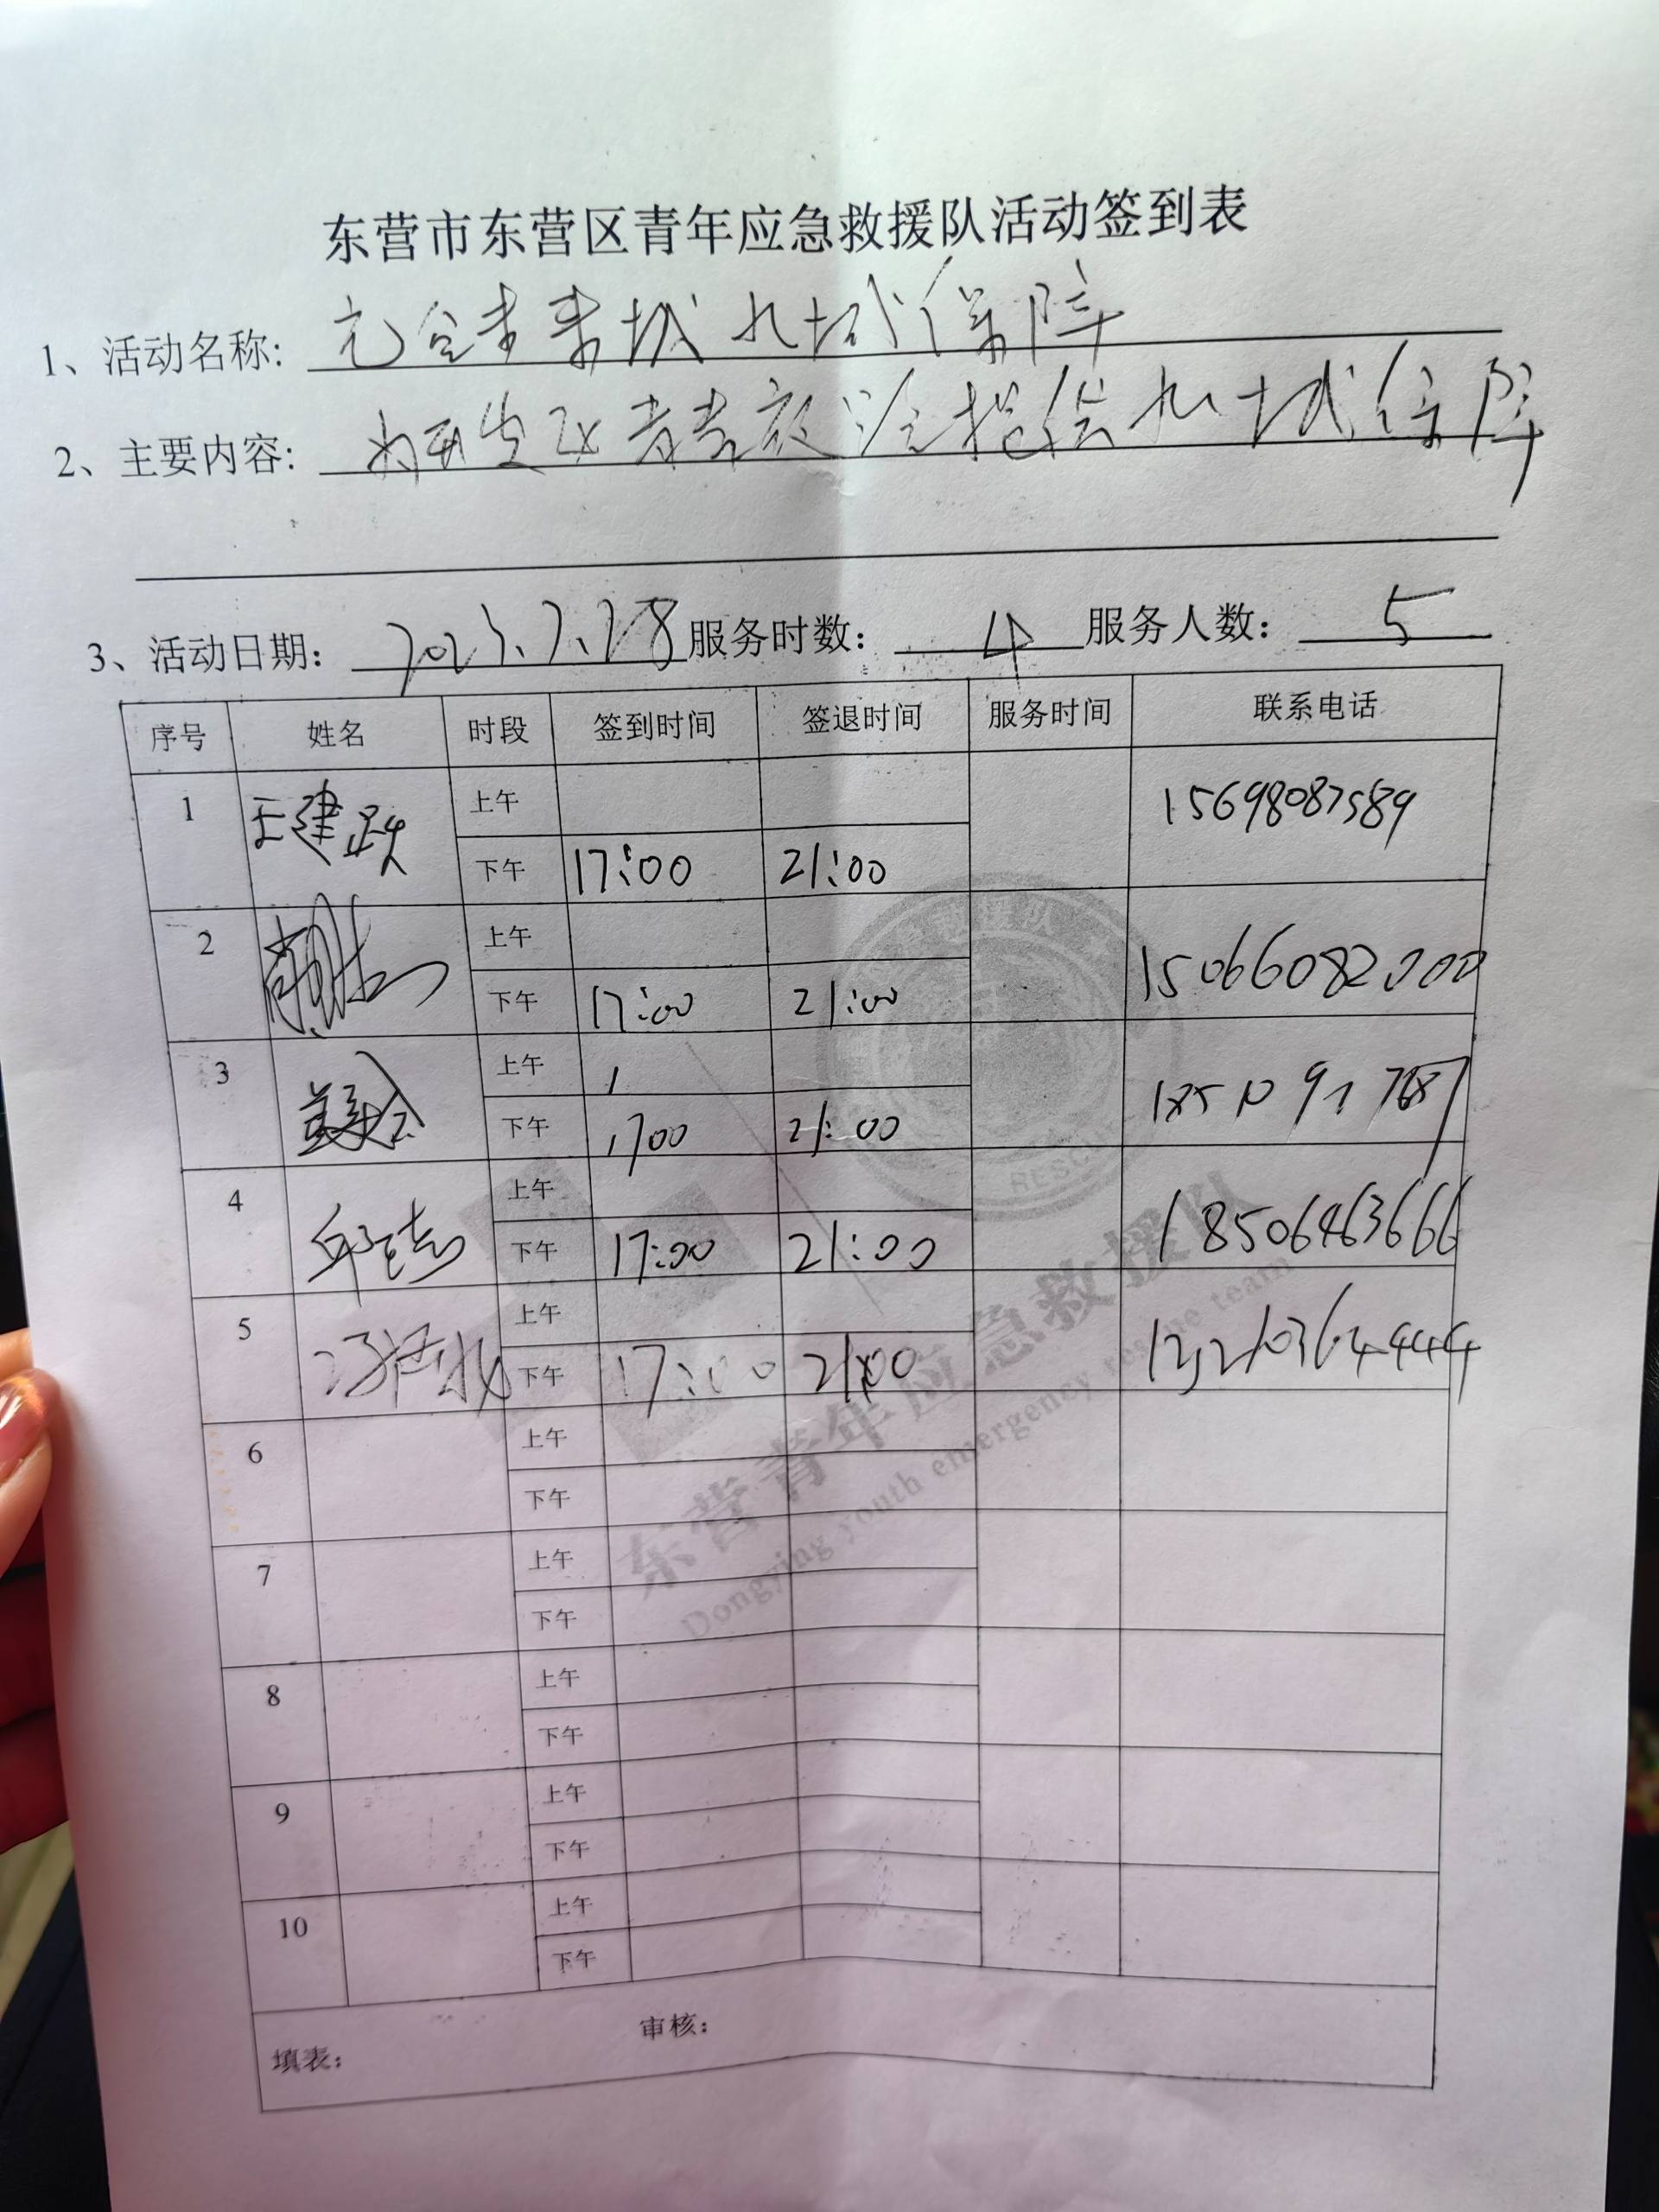 东营市东营区青年应急救援队活动签到表
1、活动名称: 元合未来城水域保障
2、主要内容: 为 放 提供水域保障
3、活动日期: 2023.7.28 服务时数: 4 服务人数: 5
序号 姓名 时段 签到时间 签退时间 服务时间 联系电话
1 王建跃 上午 15698087589
下午 17:00 21:00
2 上午 15066082000
下午 17:00 21:00
3 上午
下午 1700 21:00
4 邱志 上午 18506463666
下午 17:00 21:00
5 上午
下午 17:00 21:00
6 上午
下午
7 上午
下午
8 上午
下午
9 上午
下午
10 上午
下午
填表: 审核:
RESCUE
东营青年应急救援队
Dongying youth emergency rescue team